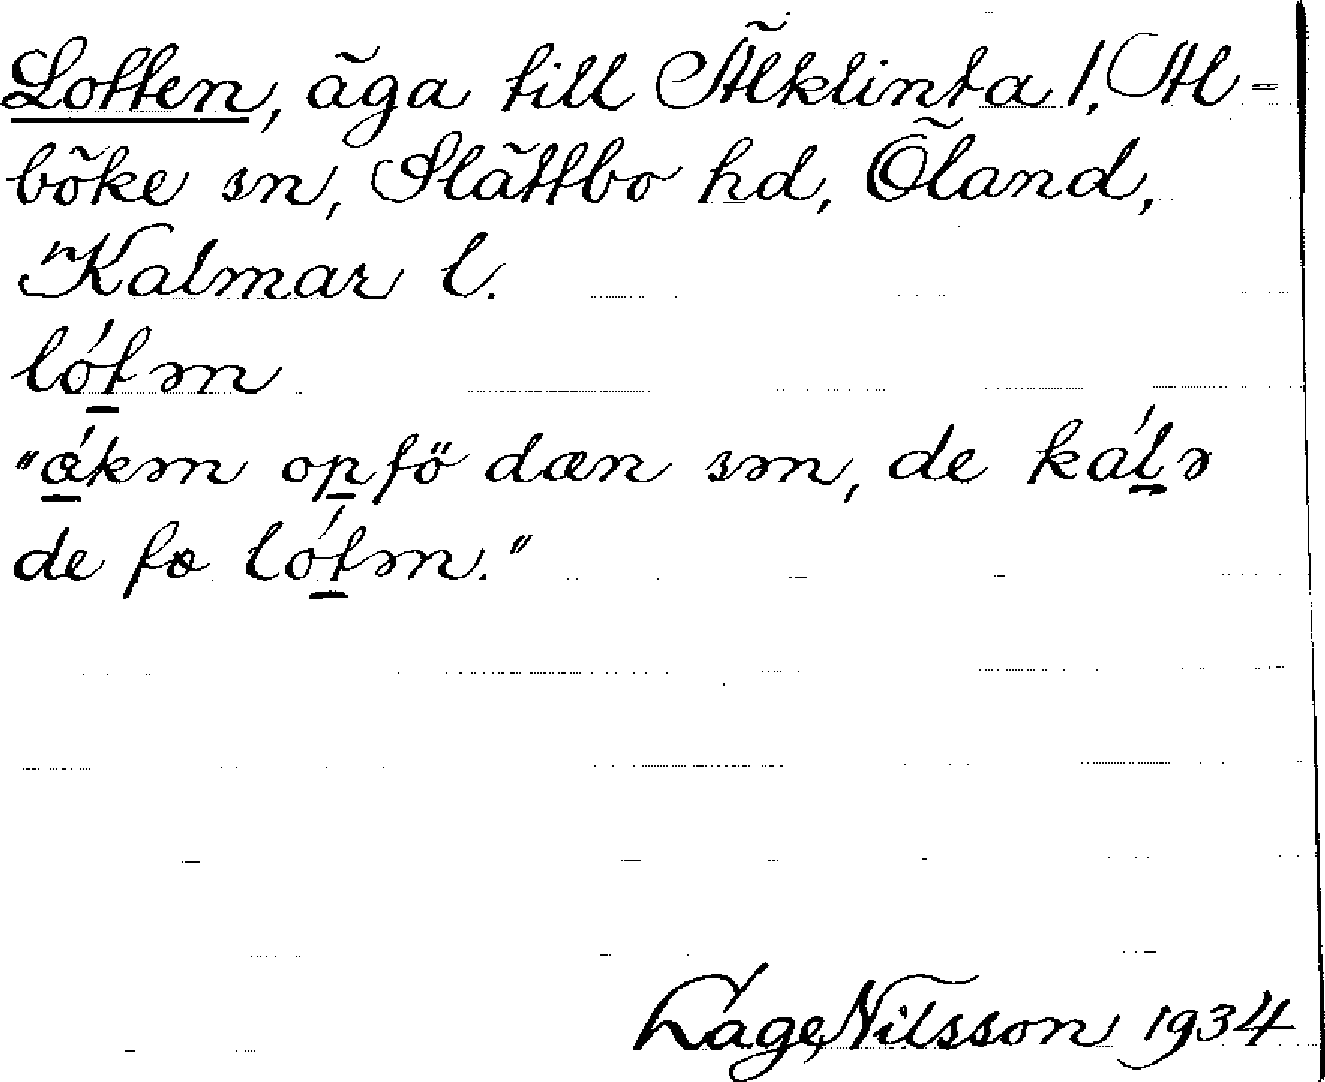 Lotten, äga till Älklinta 1, Al-
böke sn, Slättbo hd, Öland,
Kalmar l.
lótən
"åkən opfö dæn sən, de kálə
de fo lótən."
Lage Nilsson 1934